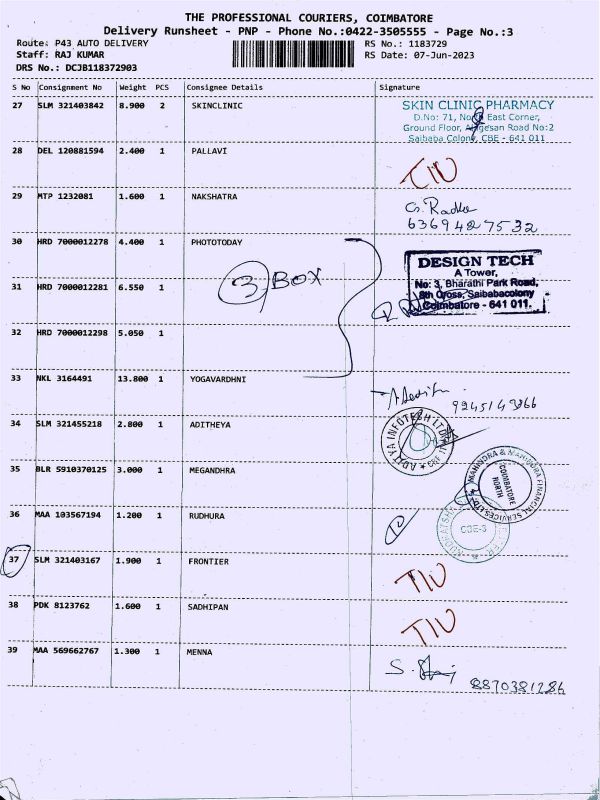 THE PROFESSIONAL COURIERS, COIMBATORE
Delivery Runsheet - PNP - Phone No.:0422-3505555 - Page No.:3
Route: P43 AUTO DELIVERY RS No.: 1183729
Staff: RAJ KUMAR RS Date: 07-Jun-2023
DRS No.: DCJB118372903
S No Consignment No Weight PCS Consignee Details Signature
27 SLM 321403842 8.900 2 SKINCLINIC
SKIN CLINIC PHARMACY
D.No: 71, North East Corner,
Ground Floor, Alagesan Road No:2
Saibaba Colony, CBE - 641 011
28 DEL 120881594 2.400 1 PALLAVI
TIU
29 MTP 1232081 1.600 1 NAKSHATRA
G. Radha
6369487532
30 HRD 7000012278 4.400 1 PHOTOTODAY
3 BOX
DESIGN TECH
A Tower,
No: 3, Bharathi Park Road,
8th Cross, Saibabacolony
Coimbatore - 641 011.
31 HRD 7000012281 6.550 1
32 HRD 7000012298 5.050 1
33 NKL 3164491 13.800 1 YOGAVARDHNI
34 SLM 321455218 2.800 1 ADITHEYA
ADITYA INFOTECH LTD
35 BLR 5910370125 3.000 1 MEGANDHRA
MAHINDRA & MAHINDRA FINANCIAL SERVICES LTD
COIMBATORE NORTH
36 MAA 103567194 1.200 1 RUDHURA
CBE-3
37 SLM 321403167 1.900 1 FRONTIER
TIU
38 PDK 8123762 1.600 1 SADHIPAN
TIU
39 MAA 569662767 1.300 1 MENNA
8870381286